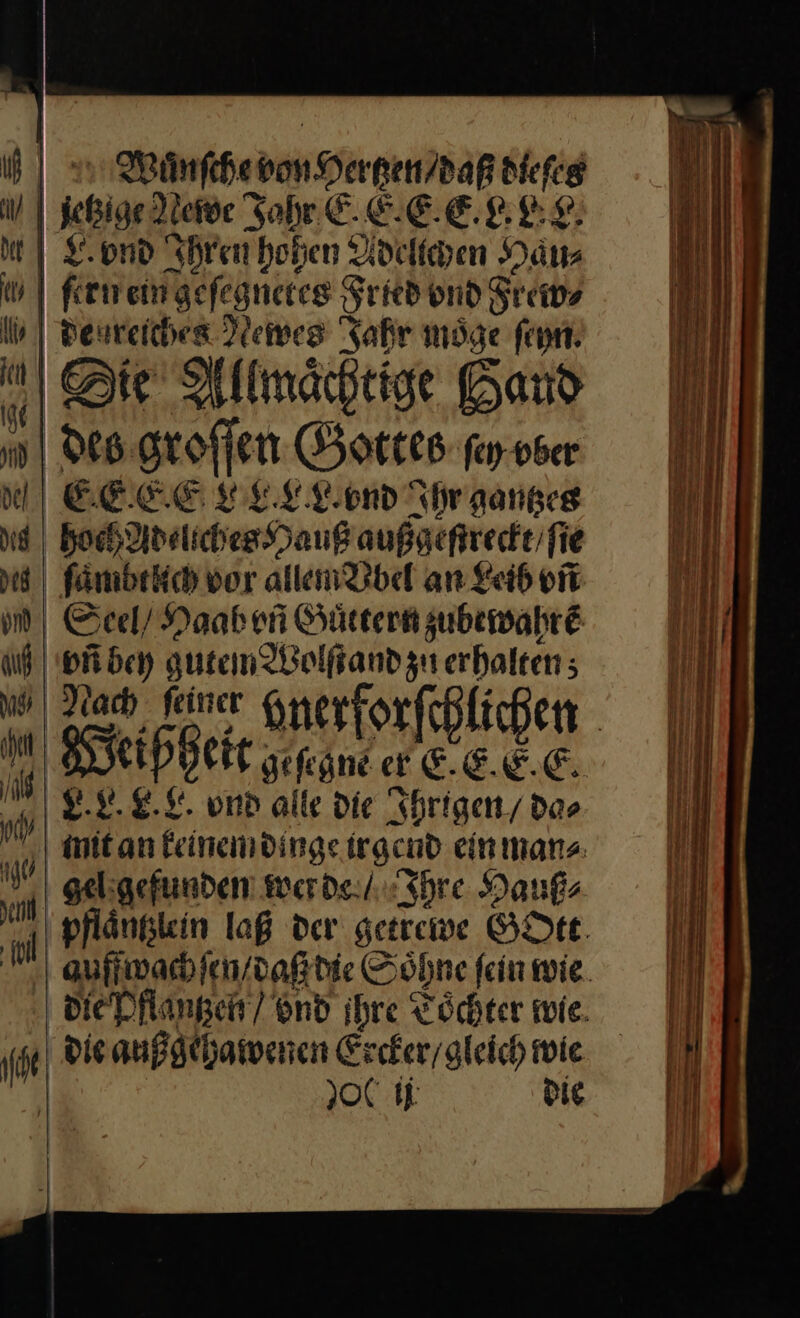 Wuͤnſche von Hertzen/daß dieſes
jetzige Newe Jahr E. E. E. E. L. L. L.
L. vnd Ihren hohen Adelichen Haͤu⸗
ſern ein geſegnetes Fried vnd Frew⸗
denreiches Newes Jahr moͤge ſeyn.
Die Allmaͤchtige Hand
des groſſen Gottes ſey vber
E.E.E.E L L.L.L. vnd Ihr gantzes
hochAdeliches Hauß außgeſtreckt/ſie
ſaͤmbtlich vor allem Vbel an Leib vñ
Seel/ Haab vñ Guͤttern zubewahrẽ
vñ bey gutem Wolſtand zu erhalten;
Nach ſeiner vnerforſchlichen
Weißheit geſegne er E. E. E. E.
L. L. L. L. vnd alle die Ihrigen/ da⸗
mit an keinem dinge irgend ein man⸗
gel gefunden werde/ Ihre Hauß⸗
pflaͤntzlein laß der getrewe GOtt
auffwachſen/daß die Soͤhne ſein wie
die Pflantzen/ vnd ihre Toͤchter wie
die außgehawenen Ercker/gleich wie
)o( ij die